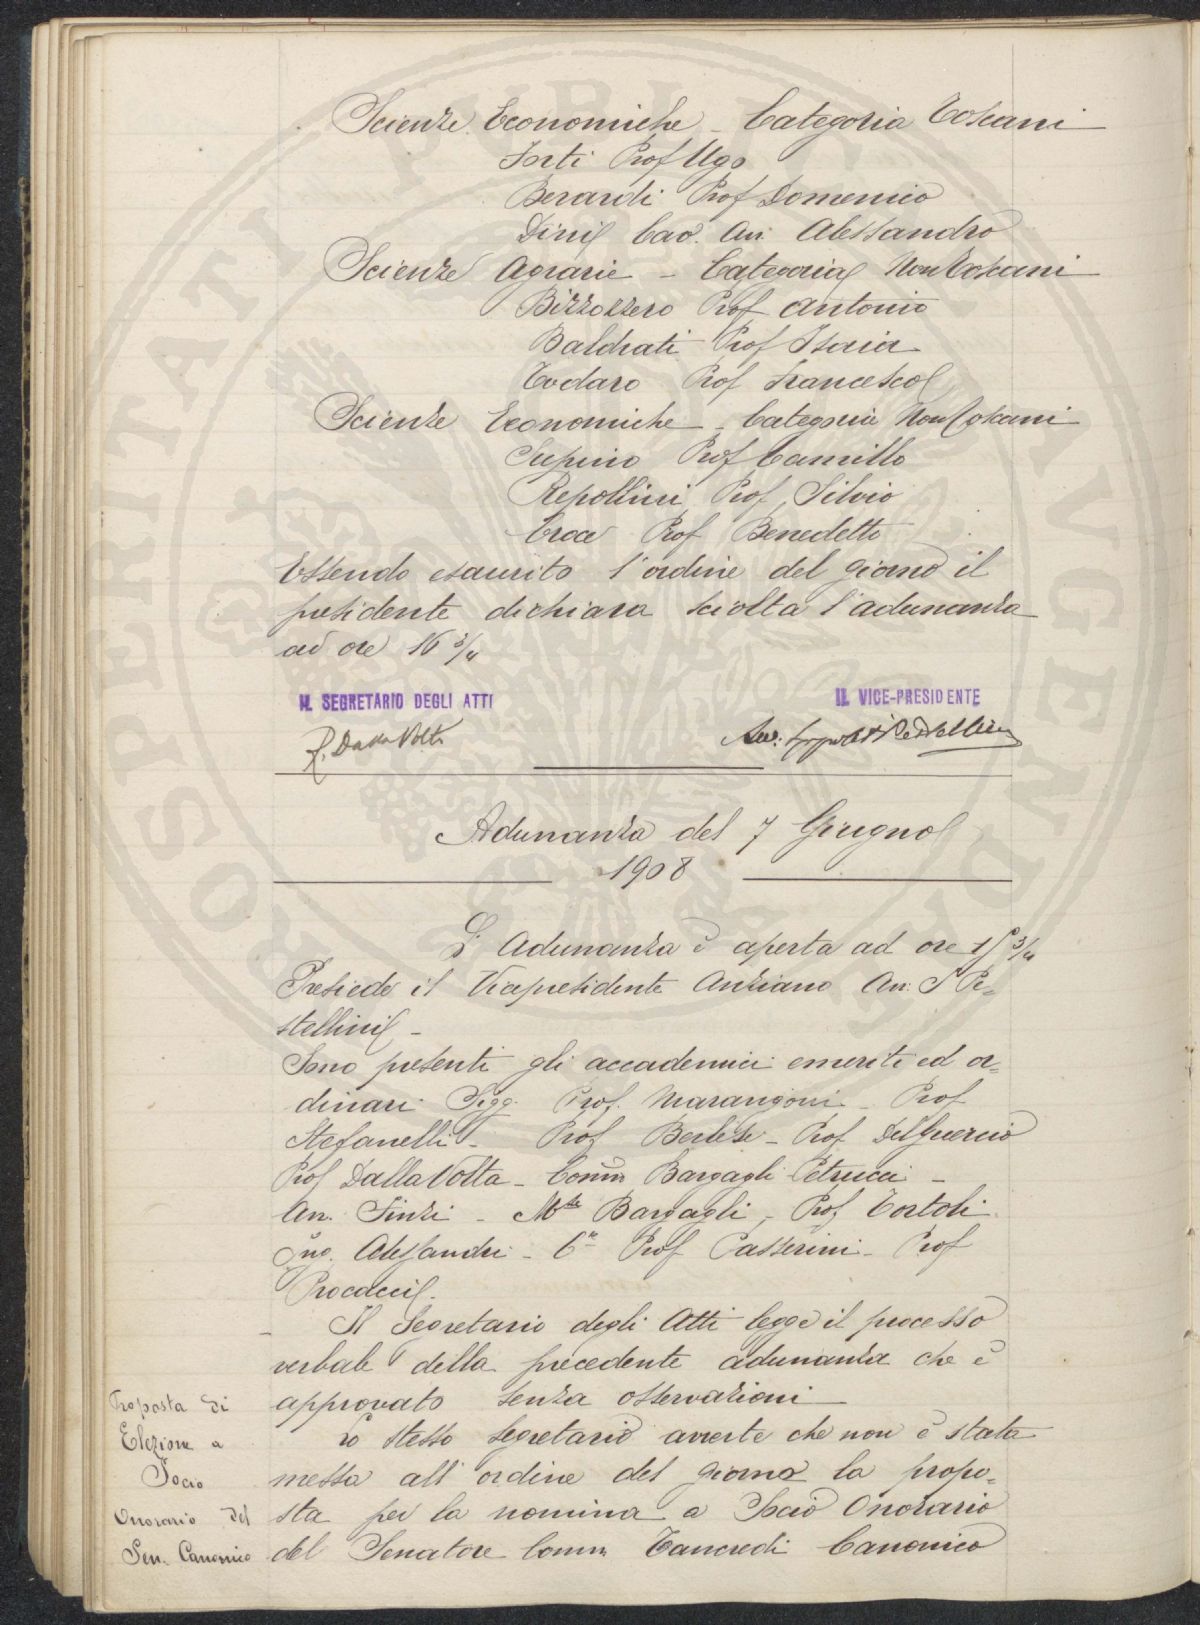 Scienze Economiche _ Categoria Toscani
Sorti Prof Ugo
Berardi Prof Domenico
Dini Cav. Avv. Alessandro
Scienze Agrarie _ Categoria Non Toscani
Bizzozzero Prof Antonio
Baldrati Prof Isaia
Todaro Prof Francesco
Scienze Economiche _ Categoria Non Toscani
Supino Prof Camillo
Repollini Prof Silvio
Croce Prof Benedetto
Essendo esaurito l'ordine del giorno il
presidente dichiara sciolta l'adunanza
ad ore 16 3/4
IL SEGRETARIO DEGLI ATTI
IL VICE-PRESIDENTE
R. Dalla Volta
Avv: Ippolito Pestellini
Adunanza del 7 Giugno
1908
L' Adunanza è aperta ad ore 15 3/4
Presiede il Vicepresidente Anziano Avv. I Pe=
stellini _
Sono presenti gli accademici emeriti ed or=
dinari Sigg. Prof. Marangoni _ Prof
Stefanelli _ Prof Berlese _ Prof Del Guercio
Prof Dalla Volta _ Comm Bargagli Petrucci _
Avv. Finzi _ M.se Bargagli _ Prof Tortoli
Ing. Alessandri _ C.te Prof Passerini _ Prof
Procacci.
Il Segretario degli Atti legge il processo
verbale della precedente adunanza che è
approvato senza osservazioni
Proposta di
Elezione a
Socio
Onorario del
Sen. Canonico
Lo stesso Segretario avverte che non è stata
messa all'ordine del giorno la propo=
sta per la nomina a Socio Onorario
del Senatore Comm Tancredi Canonico
PROSPERITATI PUBLICAE AVGENDAE